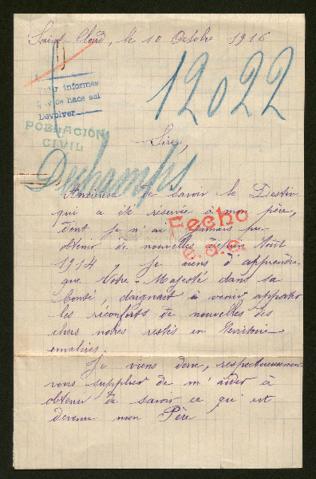 Saint Cloud, le 10 Octobre 1916
12022
informes
Devolver
POBLACIÓN
CIVIL
Sire,
Duchamps
Anxieuse de savoir le Destin
qui a été réservé à mon père,
dont je n'ai jamais pu
obtenir de nouvelles depuis Août
Fecho
1914 je viens d'apprendre
que Votre Majesté dans sa
Bonté, daignait à venir apporter
les réconforts de nouvelles des
chers nôtres restés en Territoire
envahis.
Je viens donc, respectueusement
vous supplier de m'aider à
obtenir de savoir ce qu'est
devenu mon Père